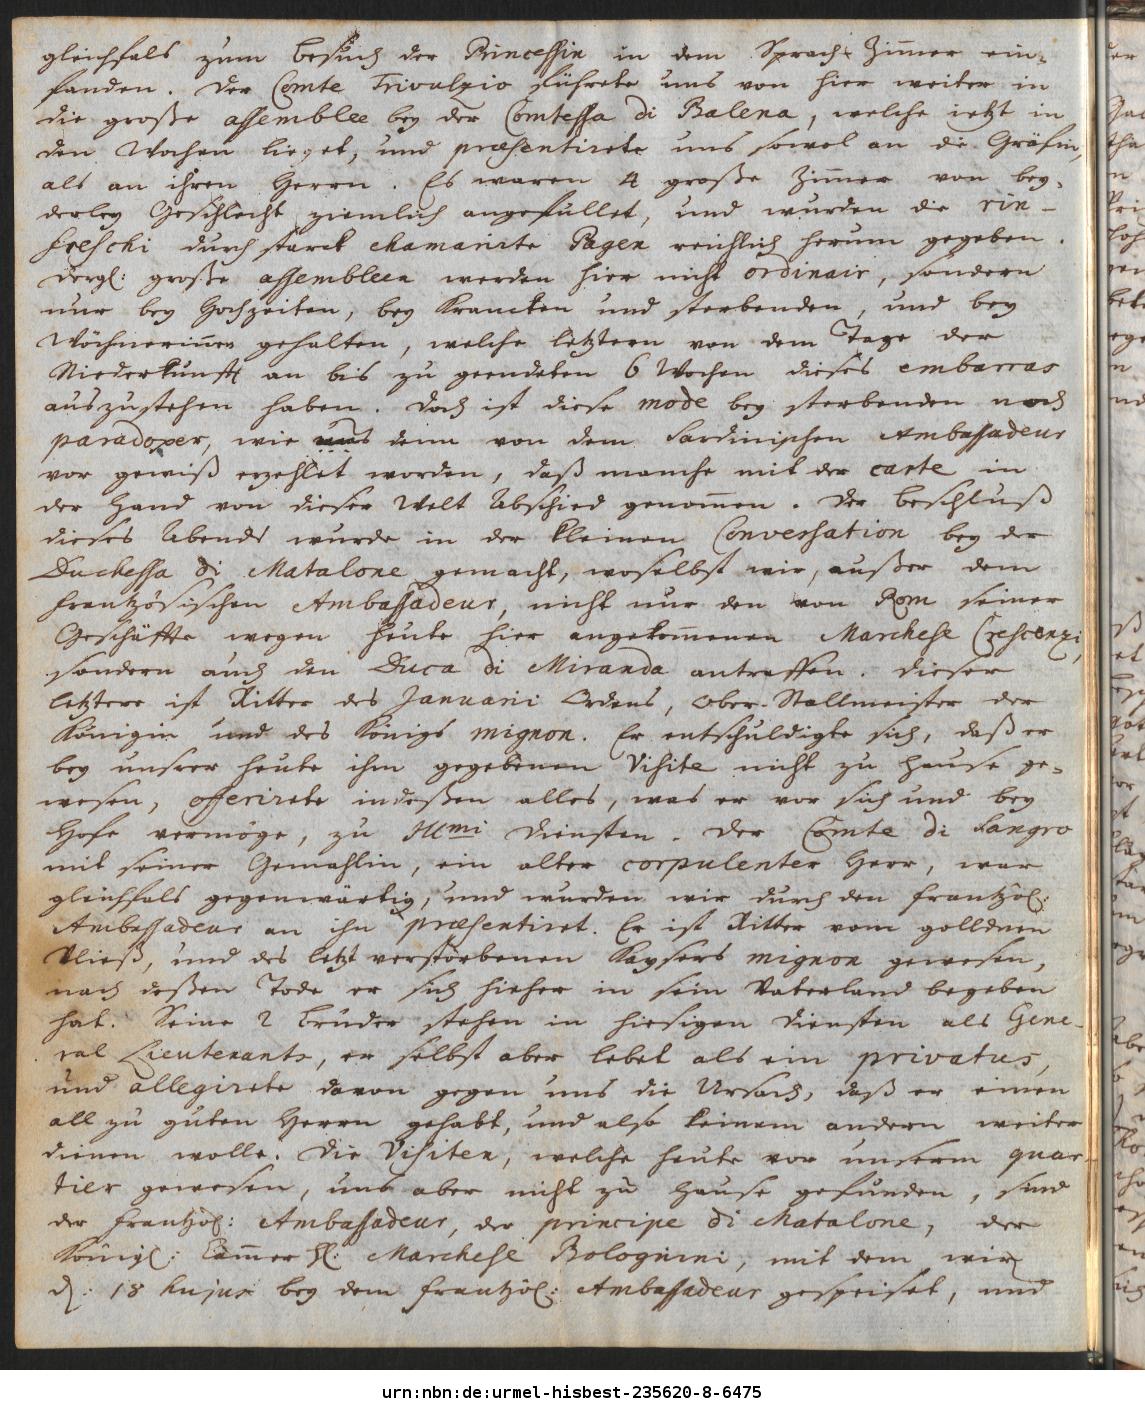 gleichfals zum besuch der Princessin in dem Sprach-Zim̄er ein-
fanden. Der Comte Trivulzio führete uns von hier weiter in
die große assemblee bey der Comtessa di Balena, welche ietzt in
den Wochen lieget, und præsentirete uns sowol an die Gräfin,
als an ihren Herrn. Es waren 4 große Zim̄er von bey-
derley Geschlecht ziemlich angefüllet, und wurden die rin-
freschi durch starck chamarirte Pagen reichlich herum gegeben.
Dergl: große assembleen werden hier nicht ordinair, sondern
nur bey Hochzeiten, bey Krancken und sterbenden, und bey
Wöchnerin̄en gehalten, welche letztern von dem Tage der
Niederkunfft an bis zu geendeten 6 Wochen dieses embarras
auszustehen haben. Doch ist diese mode bey sterbenden noch
paradoxer, wie uns denn von dem Sardinischen Ambassadeur
vor gewiß erzehlet worden, daß manche mit der carte in
der Hand von dieser Welt Abschied genom̄en. Der beschluß
dieses Abends wurde in der kleinen Conversation bey der
Duchessa di Matalone gemacht, woselbst wir, außer dem
frantzösischen Ambassadeur, nicht nur den von Rom seiner
Geschäffte wegen heute hier angekom̄enen Marchese Crescenzi,
sondern auch den Duca di Miranda antraffen. Dieser
letztere ist Ritter des Januarii Ordens, Ober-Stallmeister der
Königin und des Königs mignon. Er entschuldigte sich, daß er
bey unsrer heute ihm gegebenen Visite nicht zu Hause ge-
wesen, offerirete indeßen alles, was er vor sich und bey
Hofe vermöge, zu Illmi Diensten. Der Comte di Sangro
mit seiner Gemahlin, ein alter corpulenter Herr, war
gleichfals gegenwärtig, und wurden wir durch den frantzös:
Ambassadeur an ihn præsentiret. Er ist Ritter vom golldnen
Vließ, und des letzt verstorbenen Kaysers mignon gewesen,
nach deßen Tode er sich hieher in sein Vaterland begeben
hat. Seine 2 brüder stehen in hiesigen Diensten als Gene-
ral Lieutenants, er selbst aber lebet als ein privatus,
und allegirete davon gegen uns die Ursach, daß er einen
all zu guten Herrn gehabt, und also keinem andern weiter
dienen wolle. Die Visiten, welche heute vor unserm quar-
tier gewesen, uns aber nicht zu Hause gefunden, sind
der frantzös: Ambassadeur, der principe di Matalone, der
Königl: Cam̄er H: Marchese Bolognini, mit dem wir
d: 18 hujus bey dem frantzös: Ambassadeur gespeiset, und
urn:nbn:de:urmel-hisbest-235620-8-6475